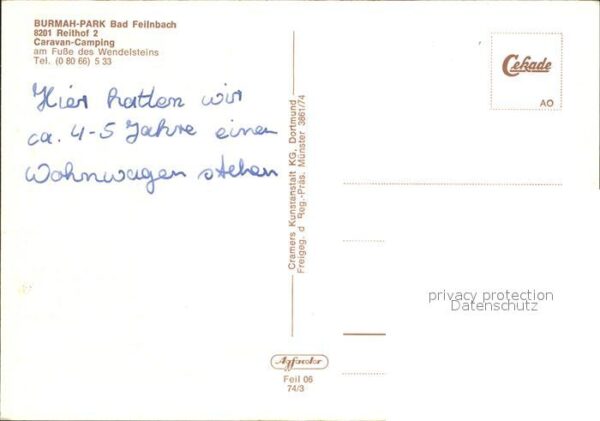 BURMAH-PARK Bad Feilnbach
8201 Reithof 2
Caravan-Camping
am Fuße des Wendelsteins
Tel. (0 80 66) 5 33
Hier hatten wir
ca. 4-5 Jahre einen
Wohnwagen stehen
Cramers Kunstanstalt KG, Dortmund
Freigeg. d Reg.-Präs. Münster 3661/74
Cekade
AO
privacy protection
Datenschutz
Agfacolor
Feil 06
74/3